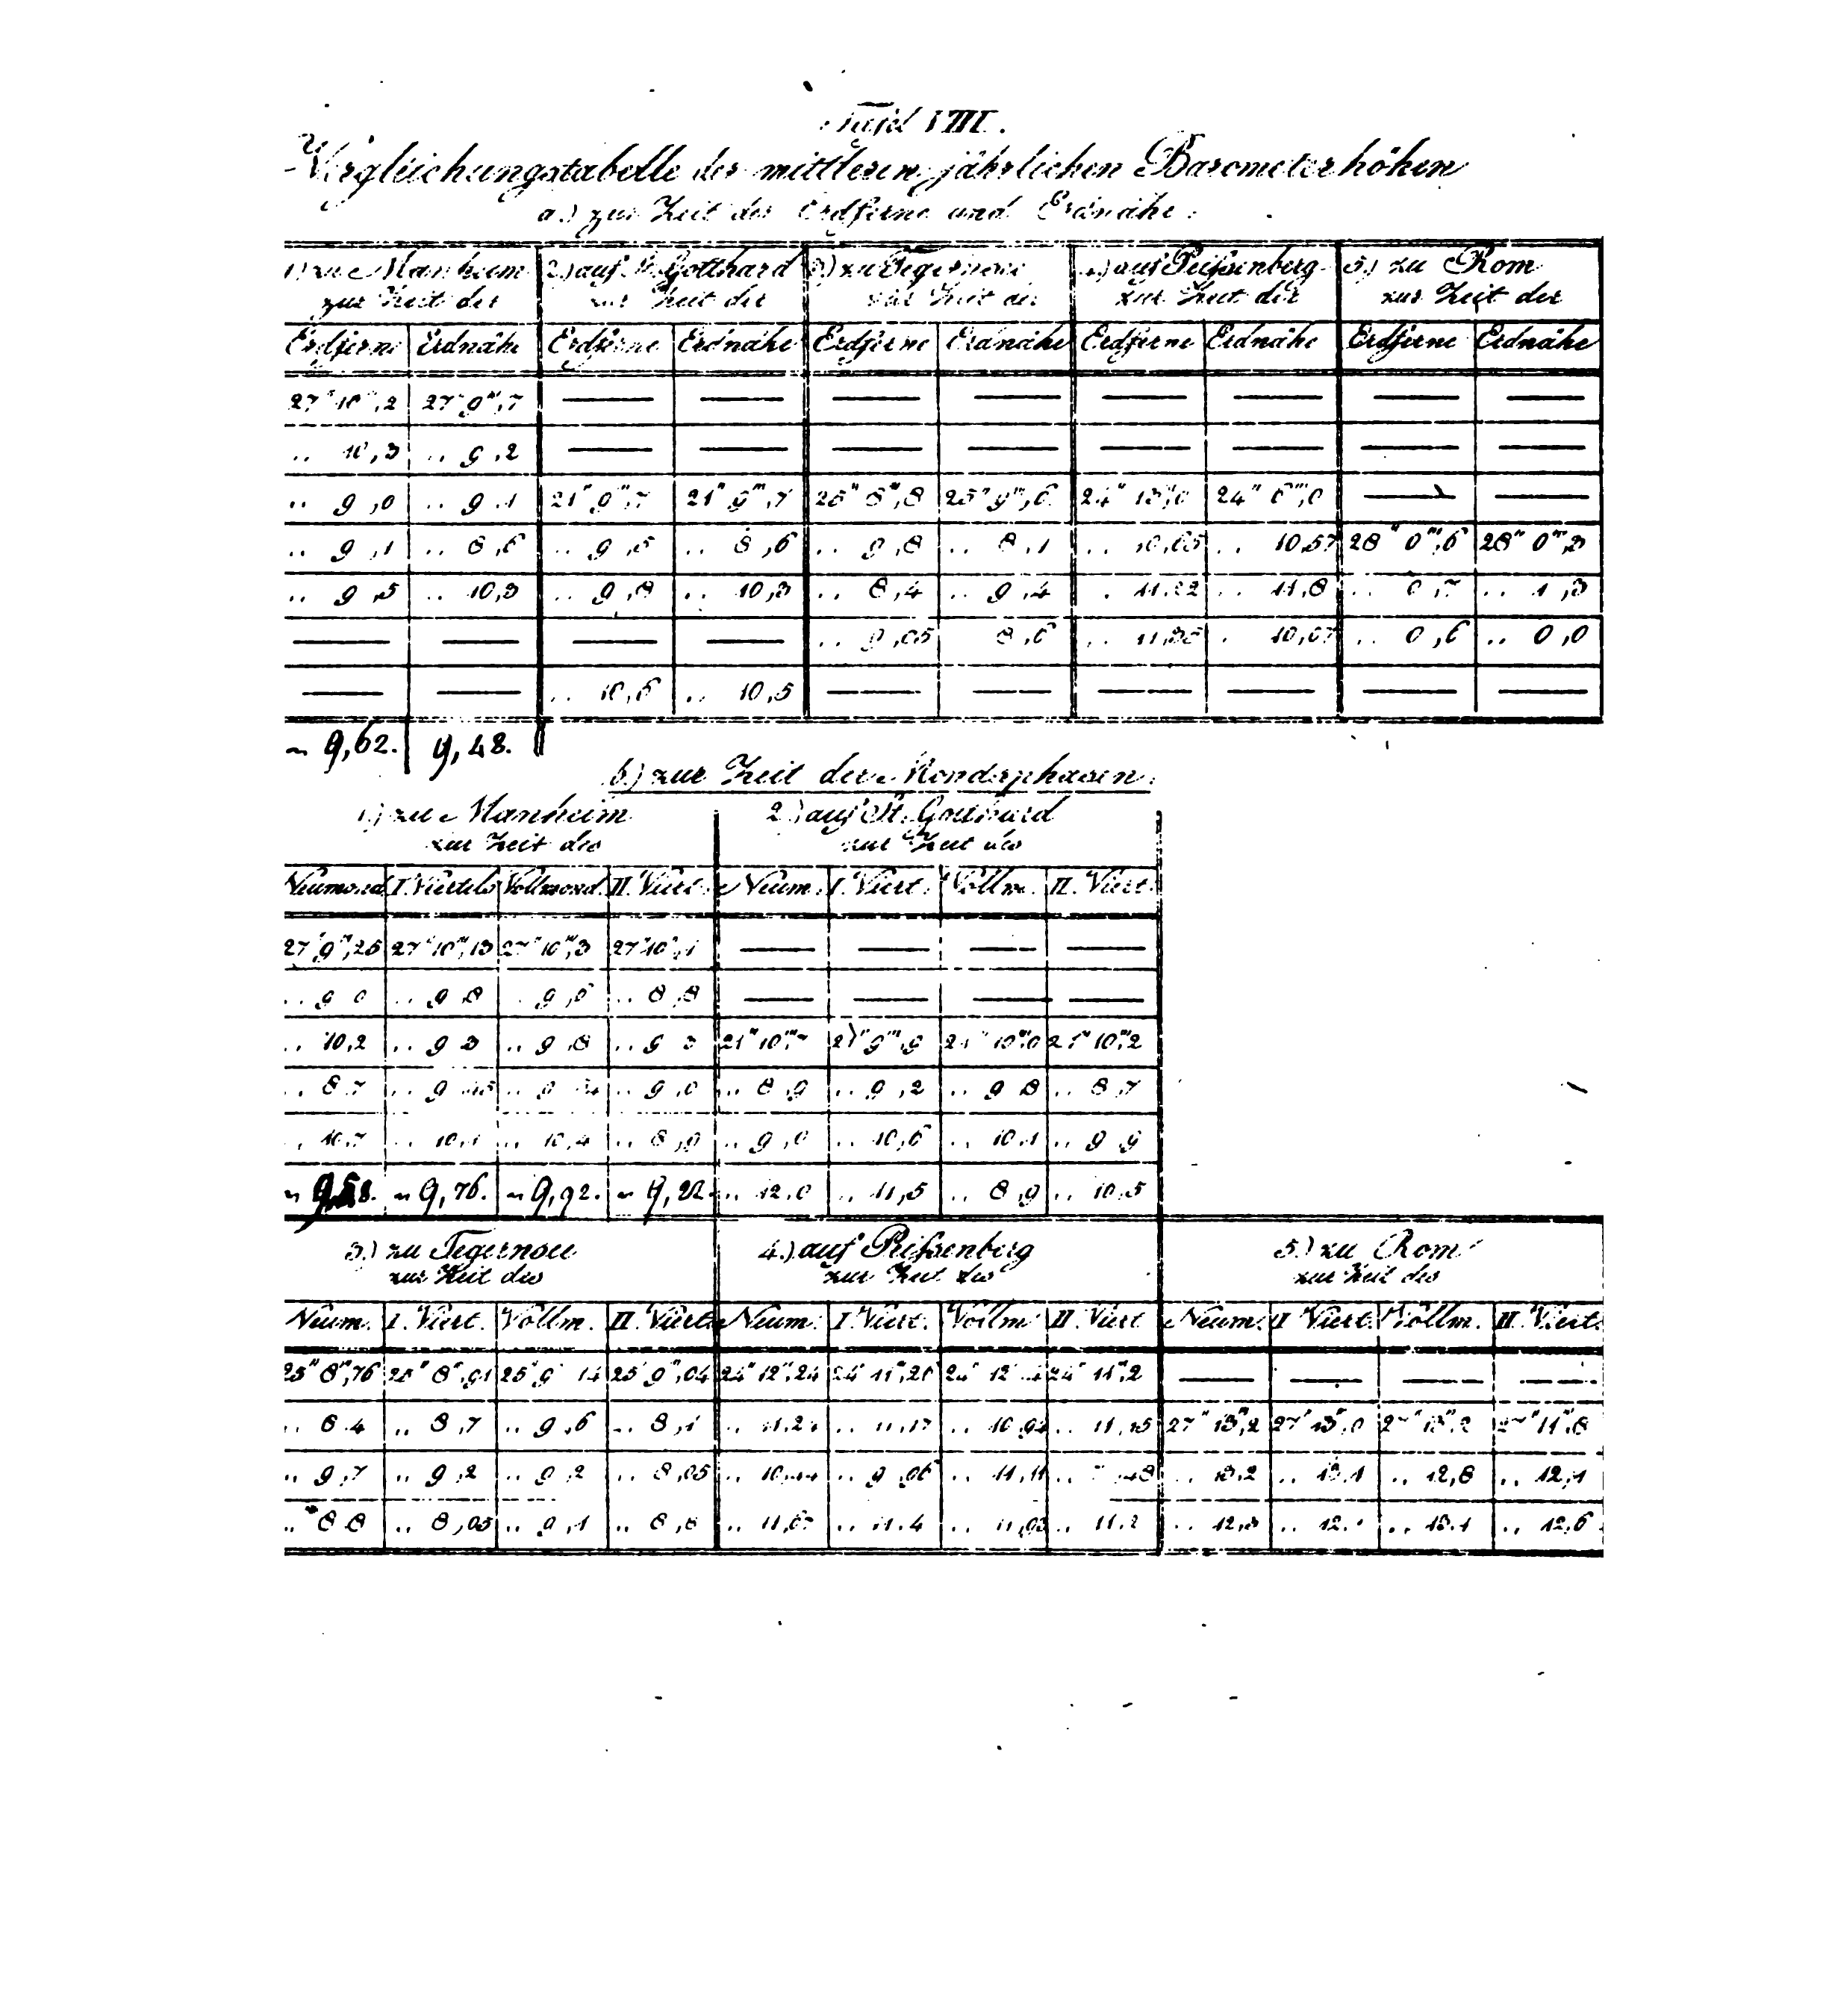 Tafel VIII.
Vergleichungstabelle der mittleren jährlichen Barometerhöhen
a.) zur Zeit der Erdferne und Erdnähe.
1.) zu Manheim 2.) auf St. Gotthard 3.) zu Tegernsee 4.) auf Peißenberg 5.) zu Rom
zur Zeit der zur Zeit der zur Zeit der zur Zeit der zur Zeit der
Erdferne Erdnähe Erdferne Erdnähe Erdferne Erdnähe Erdferne Erdnähe Erdferne Erdnähe
27" 10"',2 27" 9"',7 — — — — — — — —
.. 10,3 .. 9,2 — — — — — — — —
.. 9,0 .. 9,1 21" 9"',7 21" 9"',7 25" 8"',8 25" 9"',6 24" 24" — —
.. 9,1 .. 8,6 .. 9,5 .. 8,6 .. 9,8 .. 8,1 .. 10,65 .. 10,57 28" 0"',6 28" 0"',3
.. 9,5 .. 10,3 .. 9,8 .. 10,3 .. 8,4 .. 9,4 .. 11,22 .. 11,8 .. 0,7 .. 1,3
— — — — .. 9,05 8,6 .. .. 10,67 .. 0,6 .. 0,0
— — .. 10,6 .. 10,5 — — — — — —
~ 9,62. 9,48.
b.) zur Zeit der Mondsphasen.
1.) zu Manheim 2.) auf St. Gotthard
zur Zeit des zur Zeit des
Neumond I. Viertels Vollmond II. Viert. Neum. I. Viert. Vollm. II. Viert.
27" 9"',25 27" 10"',13 27" 10"',3 27" 10"',1 — — — —
.. 9 0 .. 9,8 .. 9,6 .. 8,8 — — — —
.. 10,2 .. 9 3 .. 9,8 .. 9 3 21" 10"' 21" 9"',9 21" 10"',0 21" 10"',2
.. 8 7 .. 9 .. 9 .. 9,0 .. 8,9 .. 9,2 .. 9 8 .. 8,7
.. 10,7 .. 10,1 .. 10,4 .. 8,9 .. 9,0 .. 10,6 .. 10,1 .. 9 9
~ 9,58. ~ 9,76. ~ 9,92. ~ 9,22. .. 12,0 .. 11,5 .. 8,9 .. 10,5
3.) zu Tegernsee 4.) auf Peißenberg 5.) zu Rom
zur Zeit des zur Zeit des zur Zeit des
Neum. I. Viert. Vollm. II. Viert. Neum. I. Viert. Vollm. II. Viert. Neum. II Viert. Vollm. II. Viert.
25" 8"',76 25" 8"',91 25" 9 14 25" 9"',04 24" 12"',24 24" 11"',21 24" 12 24" 11"',2 — — — —
.. 8 4 .. 8,7 .. 9,6 .. 8,1 .. .. 11,17 .. 10,92 .. 11,15 27" 13"',2 27" 13"',0 27" 13"',2 27" 11"',8
.. 9,7 .. 9,2 .. 9,2 .. 8,05 .. 10,44 .. 9,06 .. 11,11 .. .. 13,2 .. 13,1 .. 12,8 .. 12,1
.. 8 8 .. 8,05 .. 9,1 .. 8,8 .. .. 11,4 .. 11,03 .. 11,2 .. 12,3 .. 12. .. 13,1 .. 12,6